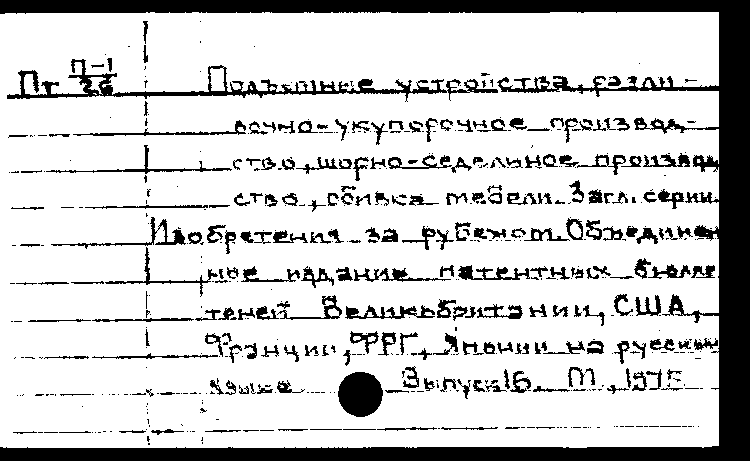 Пт П-1/26 Подъемные устройства, разли-
вочно-укупорочное производ-
ство, шорно-седельное производ
ство, обивка мебели. Загл. серии.
Изобретения за рубежом. Объединен
ное издание патентных бюлле
теней Великобритании, США,
Франции, ФРГ, Японии на русском
языке Выпуск 16. М, 1975